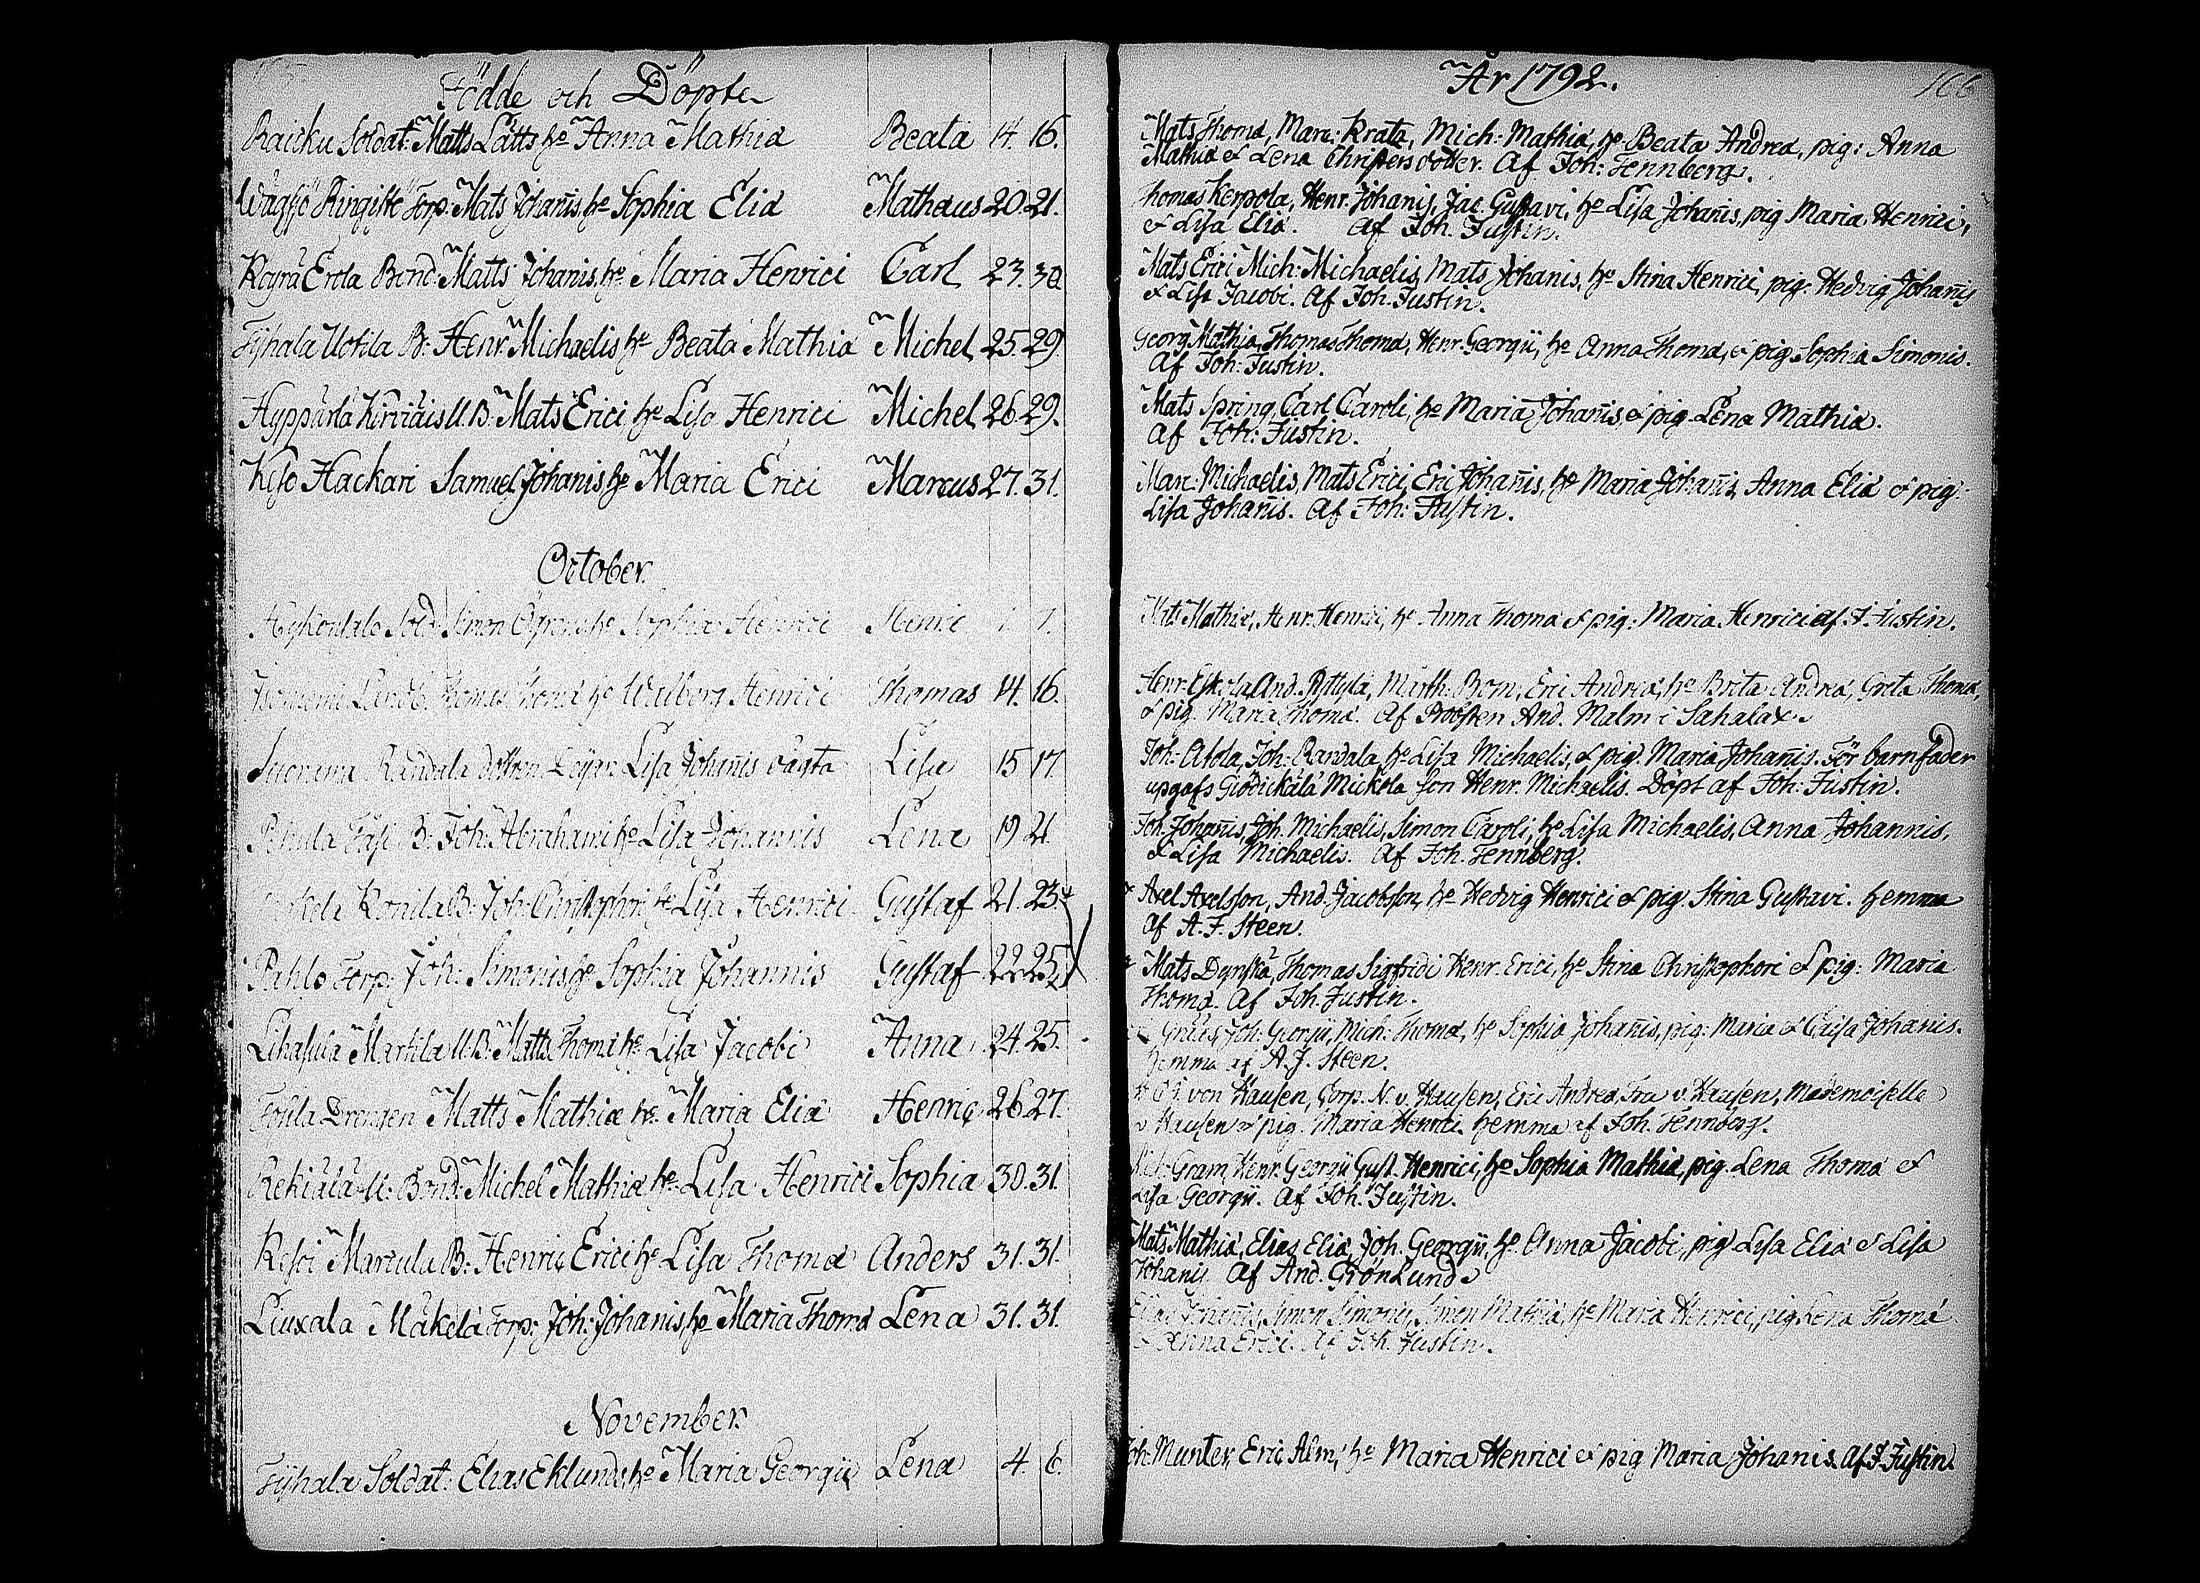 Födde och Döpte
Raicku Soldat: Matts Lätts he Anna Mathiæ Beata 14. 16.
Wägsjö Ringiste Torp: Mats Johanis, he Sophia Eliæ Mathæus 20. 21.
Röyrä Erola Bond: Matts Johanis, he Maria Henrici Carl 23. 30
Tyhala Uotila B: Henr: Michaelis he Beata Mathiæ Michel 25. 29
Hyppärlä Kirviäis U. B: Mats Erici, he Lisa Henrici Michel 26. 29.
Keso Hackari Samuel Johanis he Maria Erici Marcus 27. 31.
October.
Sold: Simon he Sophia Henrici Henric 1. 7.
Thomas Thomæ he Walborg Henrici Thomas 14. 16.
Randala dottren Lisa Johanis oägta Lisa 15 17.
B: Joh: Abrahami he Lisa Johannis Lena 19 21
Konila B: Joh: Christophori he Lisa Henrici Gustaf 21. 23
Pahlo Torp: Joh: Simonis, he Sophia Johannis Gustaf 22. 25
Lihasula Martila U. B: Matts Thomæ he Lisa Jacobi Anna 24. 25.
Drengen Matts Mathiæ he Maria Eliæ Henric 26. 27.
Rekiälä U: Bond: Michel Mathiæ he Lisa Henrici Sophia 30. 31.
Kesoi Marcula B: Henric Erici he Lisa Thomæ Anders 31. 31.
Liuxala Mäkelä Torp: Joh: Johanis, he Maria Thomæ Lena 31. 31.
November.
Tyhala Soldat: Elias Eklund, he Maria Georgii Lena 4. 6.
År 1792. 166
Mats Thomæ, Marc: Krata, Mich: Mathiæ, he Beata Andreæ, pig: Anna
Mathiæ & Lena Christersdotter. Af Joh: Tennberg.
Thomas Kerpola, Henr. Johanis, Jac. Gustavi, he Lisa Johanis, pig Maria Henrici,
& Lisa Eliæ. Af Joh. Justin.
Mats Erici Mich: Michaelis, Mats Johanis, he Stina Henrici, pig: Hedvig Johanis
& Lisa Jacobi. Af Joh. Justin.
Georg Mathiæ, Thomas Thomæ, Henr. Georgii, he Anna Thomæ, & pig Sophia Simonis.
Af Joh: Justin.
Mats Spring, Carl Caroli, he Maria Johanis, & pig. Lena Mathiæ.
Af Joh: Justin.
Marc. Michaelis, Mats Erici, Eric Johanis, he Maria Johanis, Anna Eliæ & pig:
Lisa Johanis. Af Joh: Justin.
Mats Mathiæ, Henr. Henrici, he Anna Thomæ & pig: Maria Henrici af J. Justin.
Henr. Eskola, And. Pyttylä, Marth: Bom, Eric Andreæ, he Brita Andreæ, Greta Thomæ,
& pig. Maria Thomæ. Af Prosten And. Malm i Sahalax.
Joh: Alola, Joh: Randala, he Lisa Michaelis, & pig. Maria Johanis. För barnfader
upgafs Giödickälä Mickola son Henr. Michaelis. Döpt af Joh: Justin.
Joh. Johanis, Joh. Michaelis, Simon Caroli, he Lisa Michaelis, Anna Johannis,
& Lisa Michaelis. Af Joh. Tennberg.
Axel Axelsson, And. Jacobsson, he Hedvig Henrici & pig. Stina Gustavi. hemma
af A. J. Steen.
Mats Dynstä, Thomas Sigfridi Henr. Erici, he Stina Christophori & pig: Maria
Thomæ. Af Joh. Justin.
Joh: Georgii, Mich: Thomæ, he Sophia Johanis, pig: Maria & Caisa Johanis.
hemma af A. J. Steen.
von Hausen, Corp. N. v. Hausen, Eric Andreæ, Fru v. Hausen, Mademoiselle
v Hausen & pig. Maria Henrici. hemma af Joh. Tennberg.
Gram, Henr. Georgii, Gust. Henrici, he Sophia Mathiæ, pig. Lena Thomæ &
Lisa Georgii. Af Joh. Justin.
Mats Mathiæ, Elias Eliæ, Joh. Georgii, he Anna Jacobi, pig Lisa Eliæ & Lisa
Johanis. Af And. Grönlund.
Elias Johanis, Simon Simonis, Simon Mathiæ, he Maria Henrici, pig Lena Thomæ
& Anna Erici. Af Joh. Justin.
Joh. Munter, Eric Alm, he Maria Henrici & pig Maria Johanis. Af J. Justin.